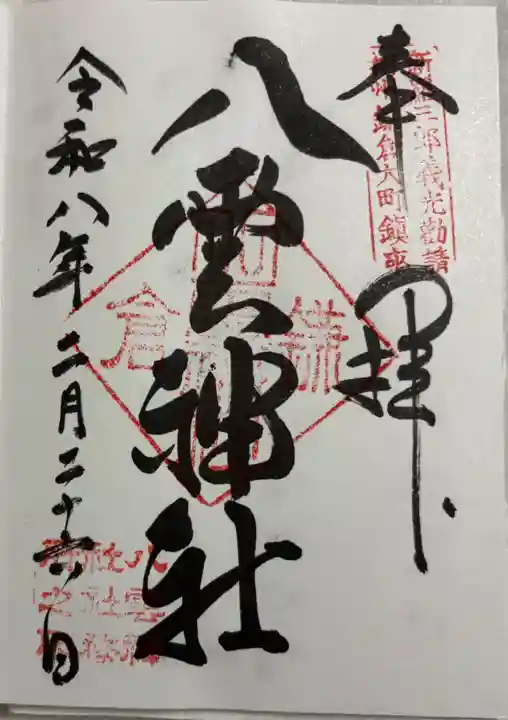 奉拝
新羅三郎義光勧請
鎌倉大町鎮座
八雲神社
鎌倉
令和八年二月二十六日
八雲神社